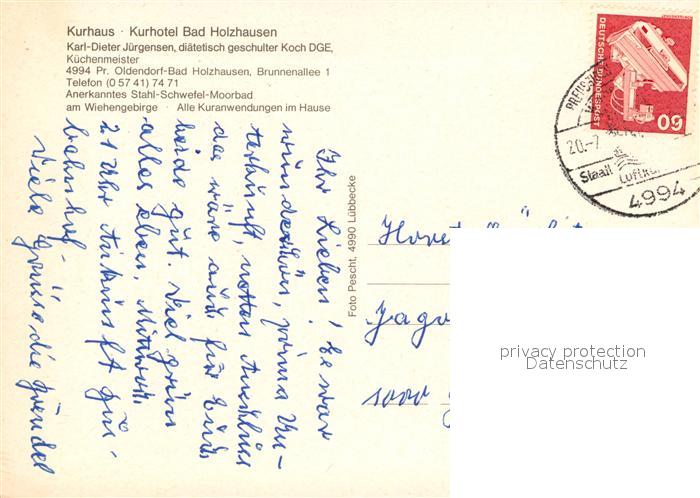 Kurhaus · Kurhotel Bad Holzhausen
Karl-Dieter Jürgensen, diätetisch geschulter Koch DGE,
Küchenmeister
4994 Pr. Oldendorf-Bad Holzhausen, Brunnenallee 1
Telefon (0 57 41) 74 71
Anerkanntes Stahl-Schwefel-Moorbad
am Wiehengebirge · Alle Kuranwendungen im Hause
Ihr Lieben! Es war
wunderschön, prima Un-
terkunft, netten Anschluss
das wäre auch für Euch
beide gut. Viel grün
alles eben, Mittwoch
21 Uhr Ankunft Gü-
bahnhof-
Viele Grüsse die
Foto Pescht, 4990 Lübbecke
DEUTSCHE BUNDESPOST
60
20.-7
Staatl Luftku
4994
1000
privacy protection
Datenschutz